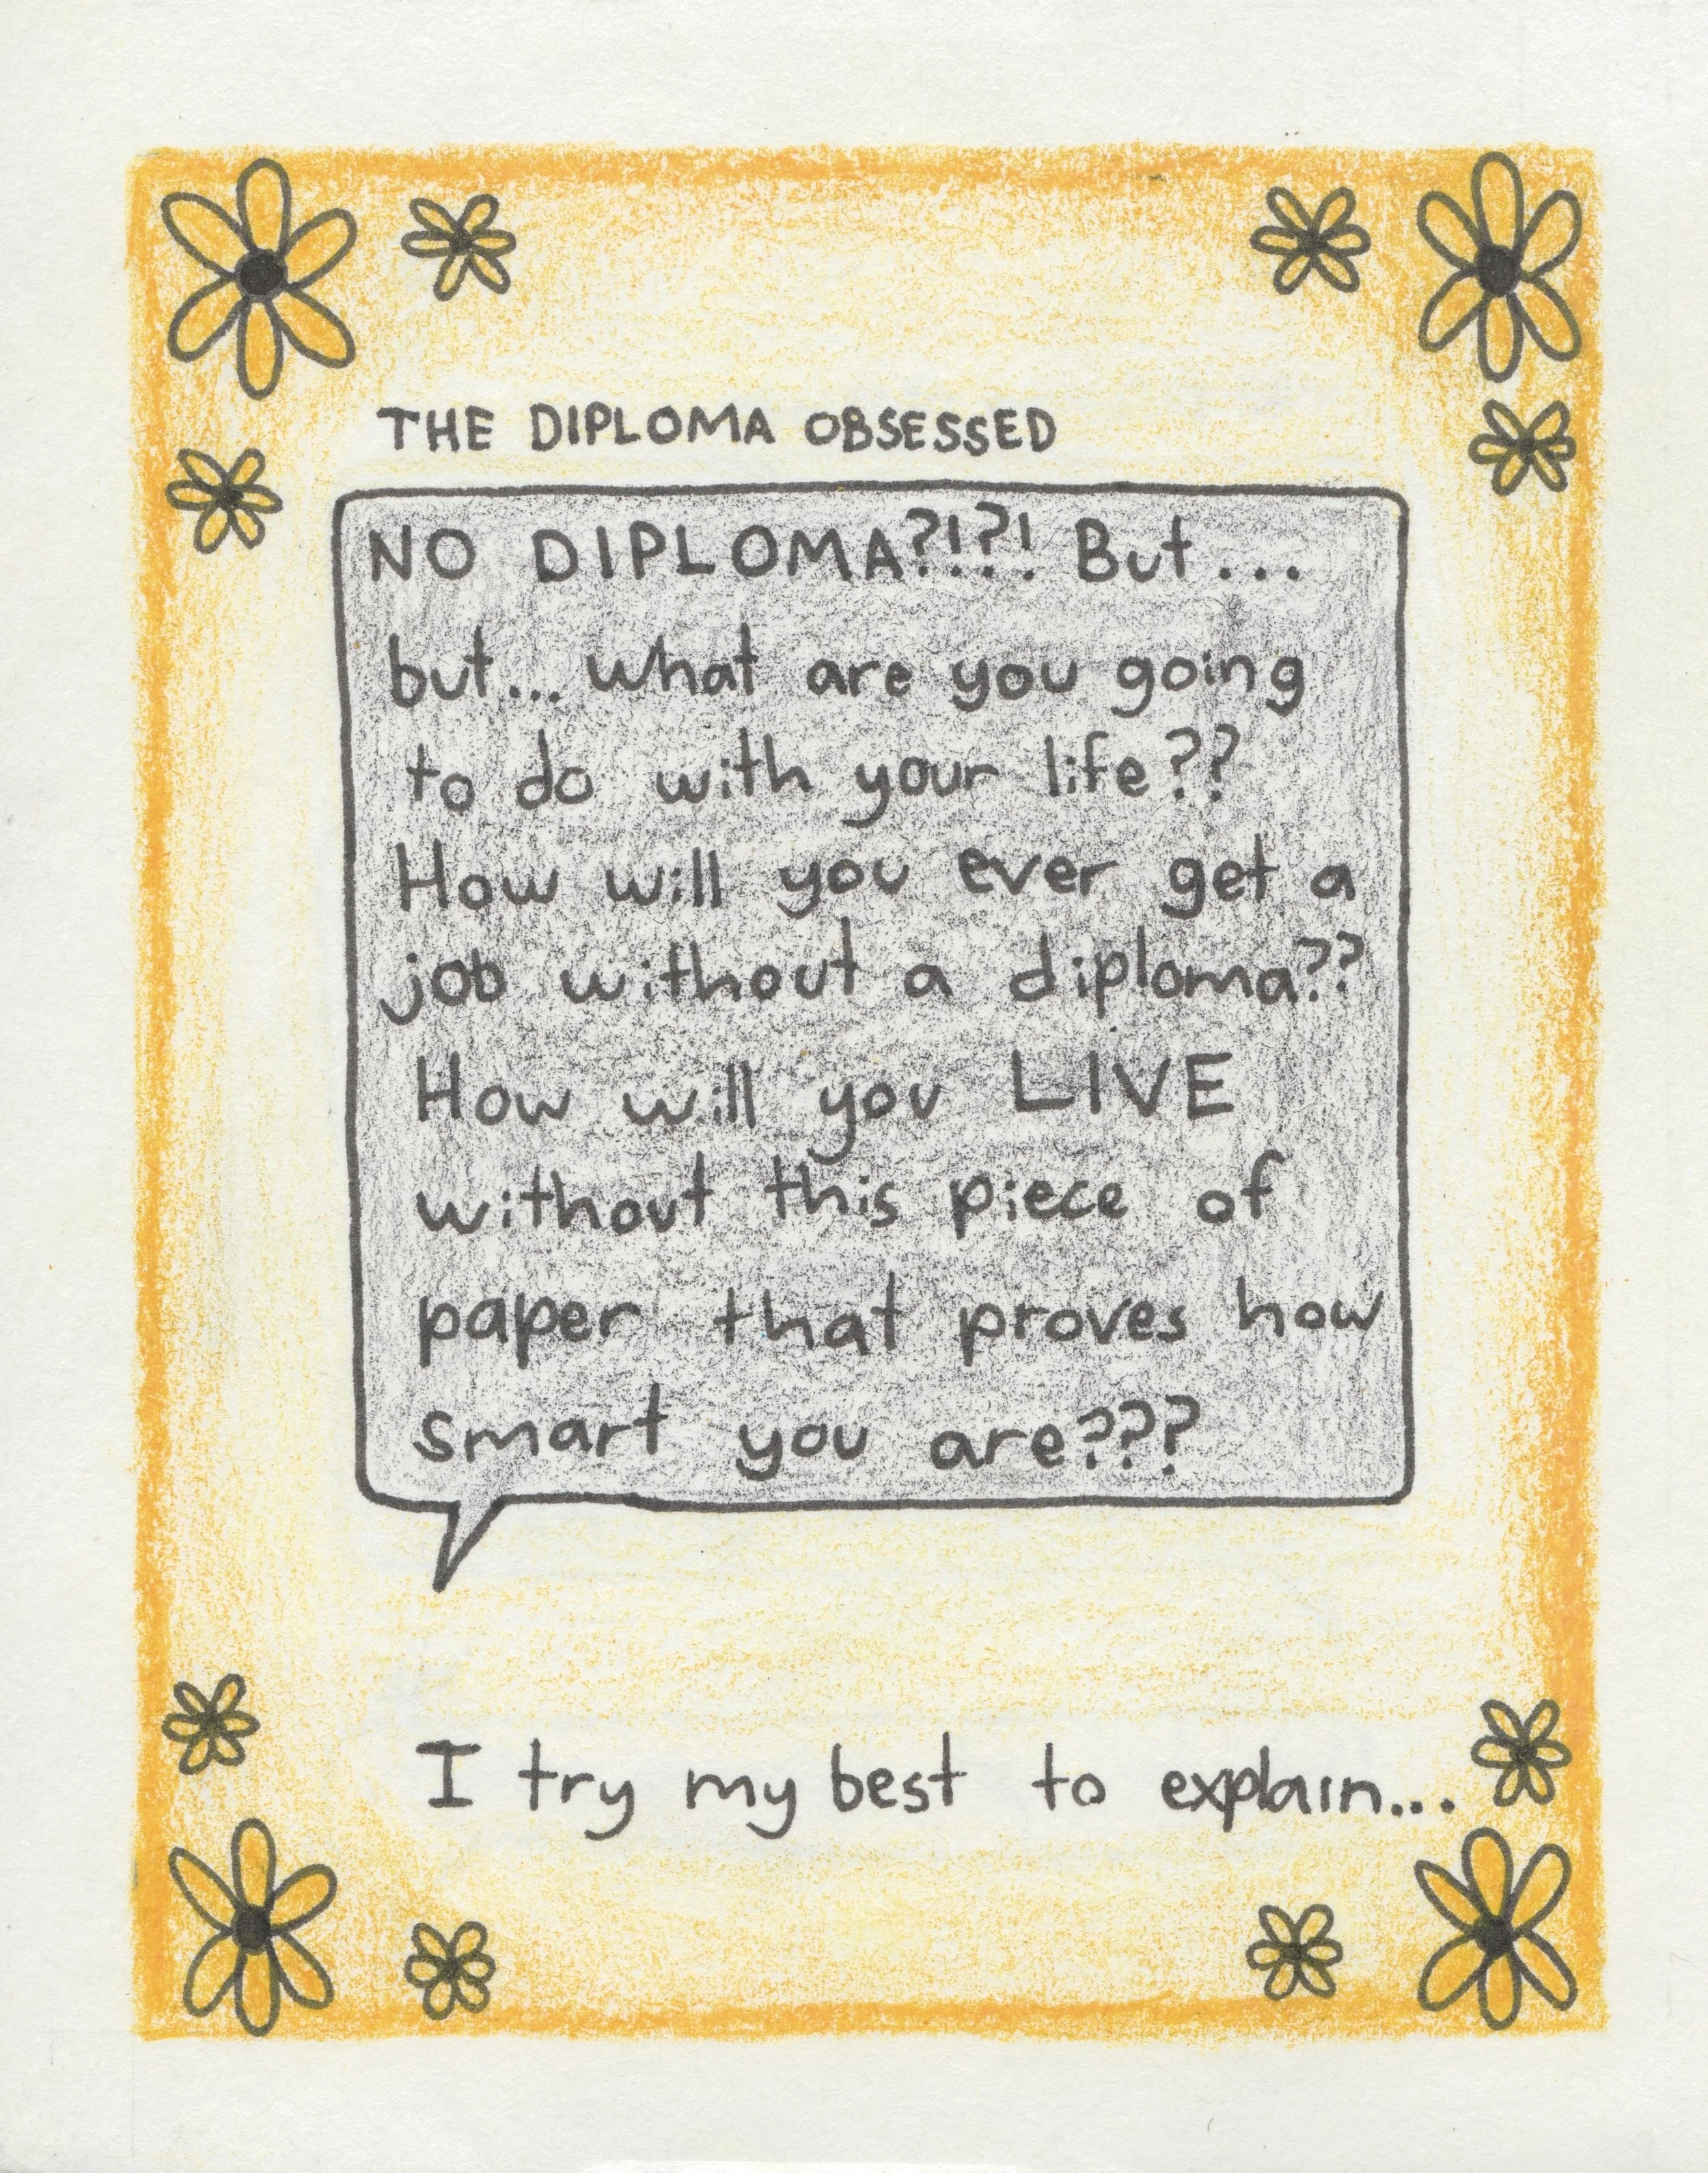 THE DIPLOMA OBSESSED
NO DIPLOMA?!?! But...
but... what are you going
to do with your life??
How will you ever get a
job without a diploma??
How will you LIVE
without this piece of
paper that proves how
smart you are???
I try my best to explain...